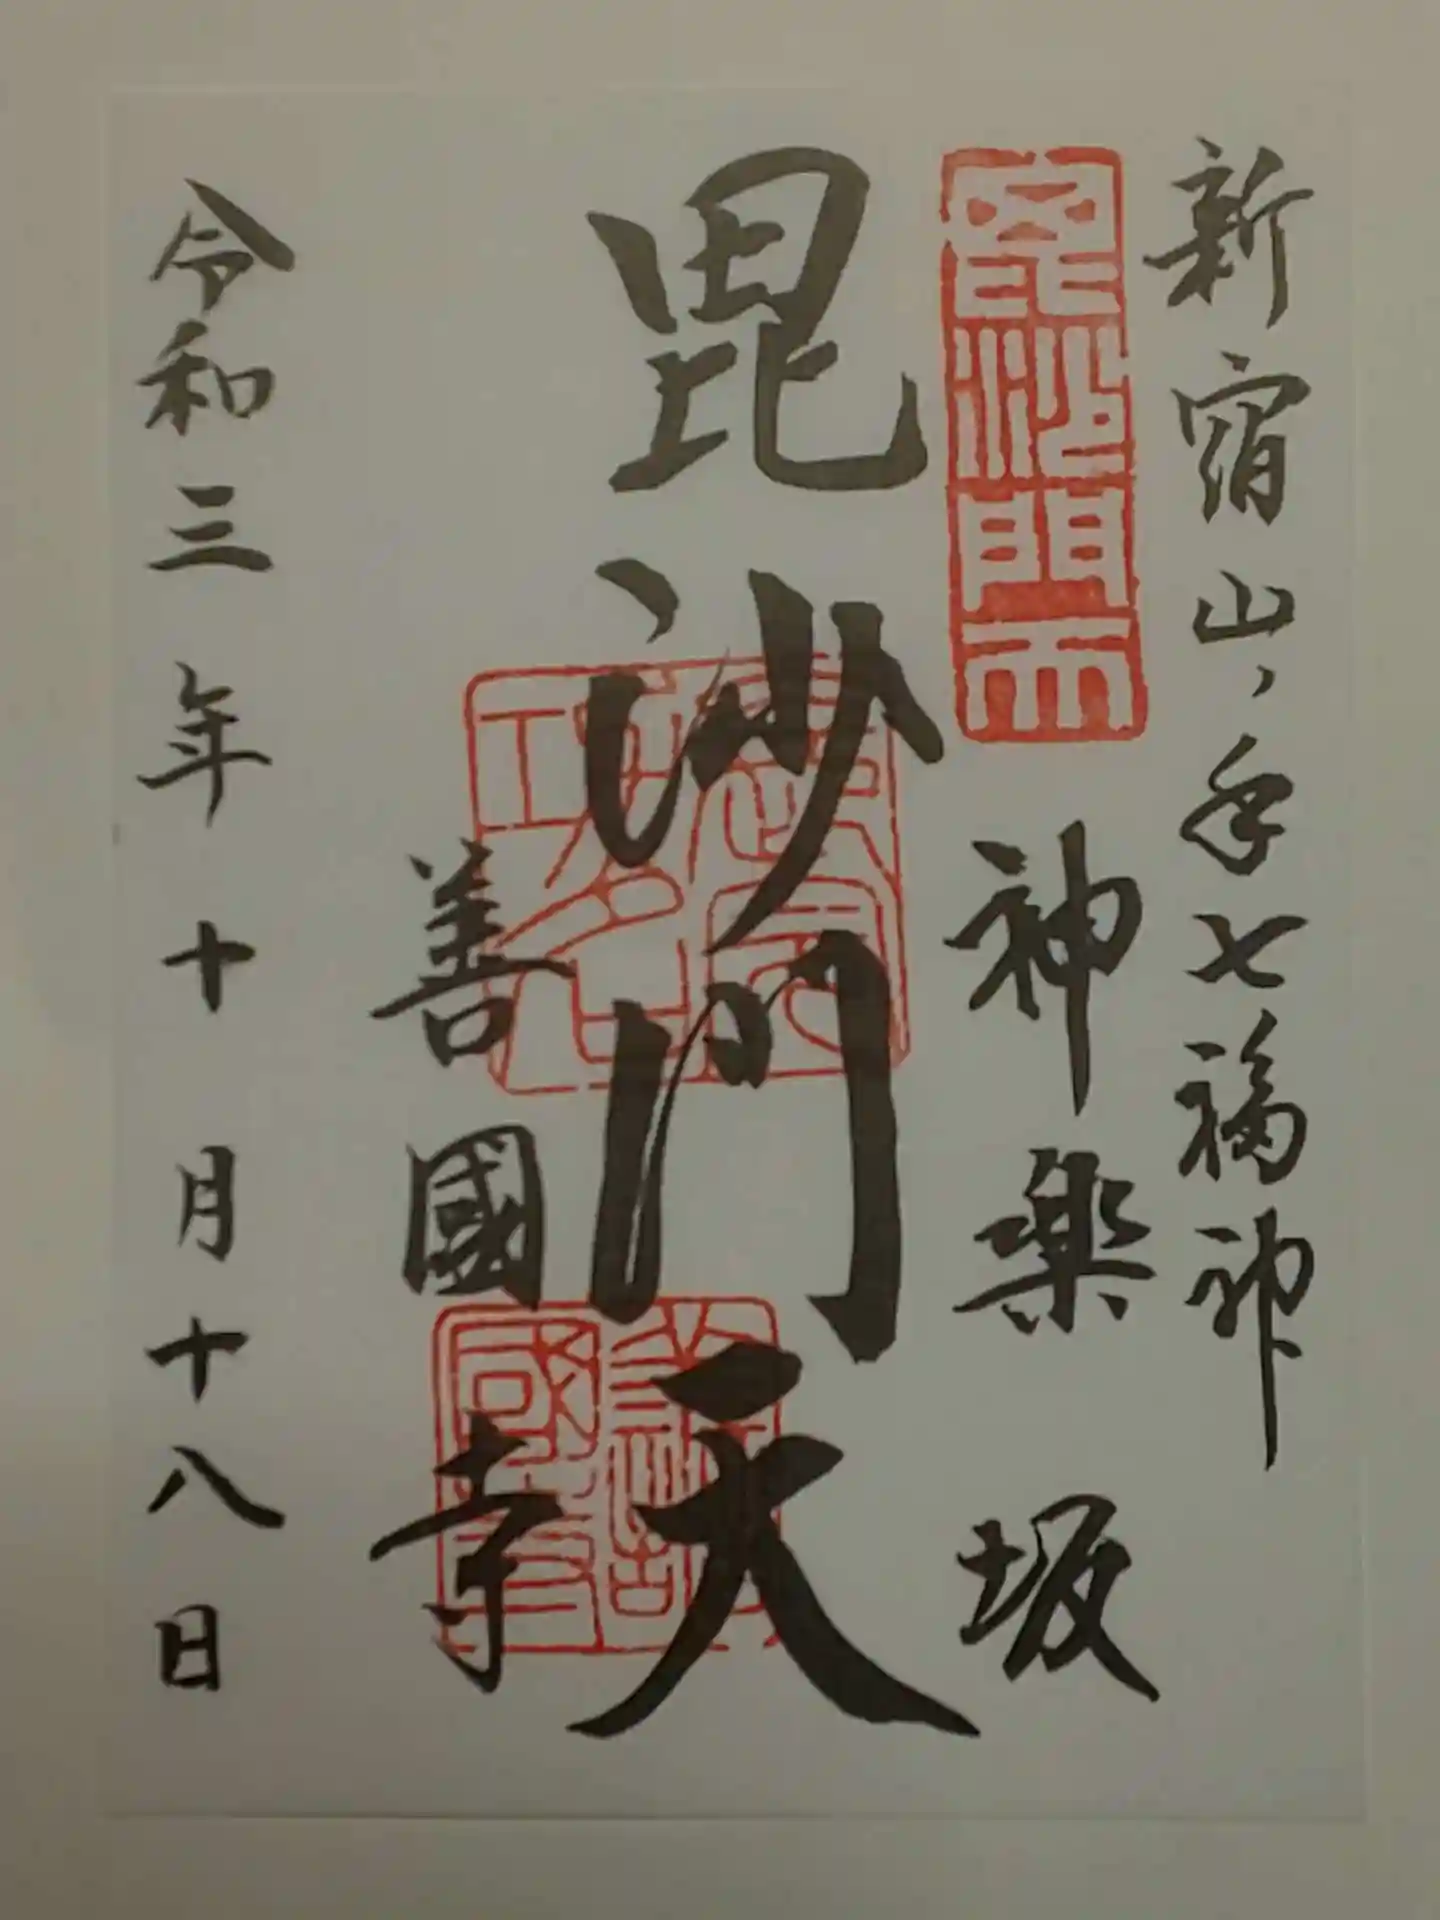 新宿山ノ手七福神
毘沙門天
神楽坂
毘沙門天
善國寺
令和三年十月十八日